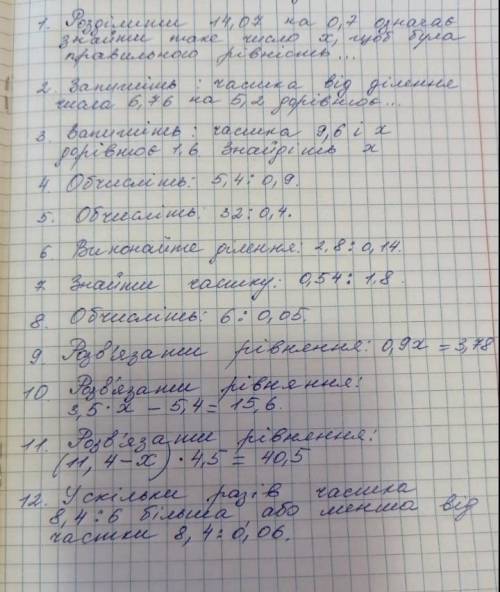 1. Розділити 14,07 на 0,7 означає
знайти таке число x, щоб була
правильною рівність...
2. Запишіть: частка від ділення
числа 5,76 на 5,2 дорівнює...
3. Запишіть: частка 9,6 і x
дорівнює 1,6. Знайдіть x
4. Обчисліть: 5,4 : 0,9.
5. Обчисліть: 32 : 0,4.
6. Виконайте ділення: 2,8 : 0,14.
7. Знайти частку: 0,54 : 1,8.
8. Обчисліть: 6 : 0,05.
9. Розв'язати рівняння: 0,9x = 3,78
10. Розв'язати рівняння:
3,5 · x - 5,4 = 15,6.
11. Розв'язати рівняння:
(11,4 - x) · 4,5 = 40,5
12. У скільки разів частка
8,4 : 6 більша або менша від
частки 8,4 : 0,06.